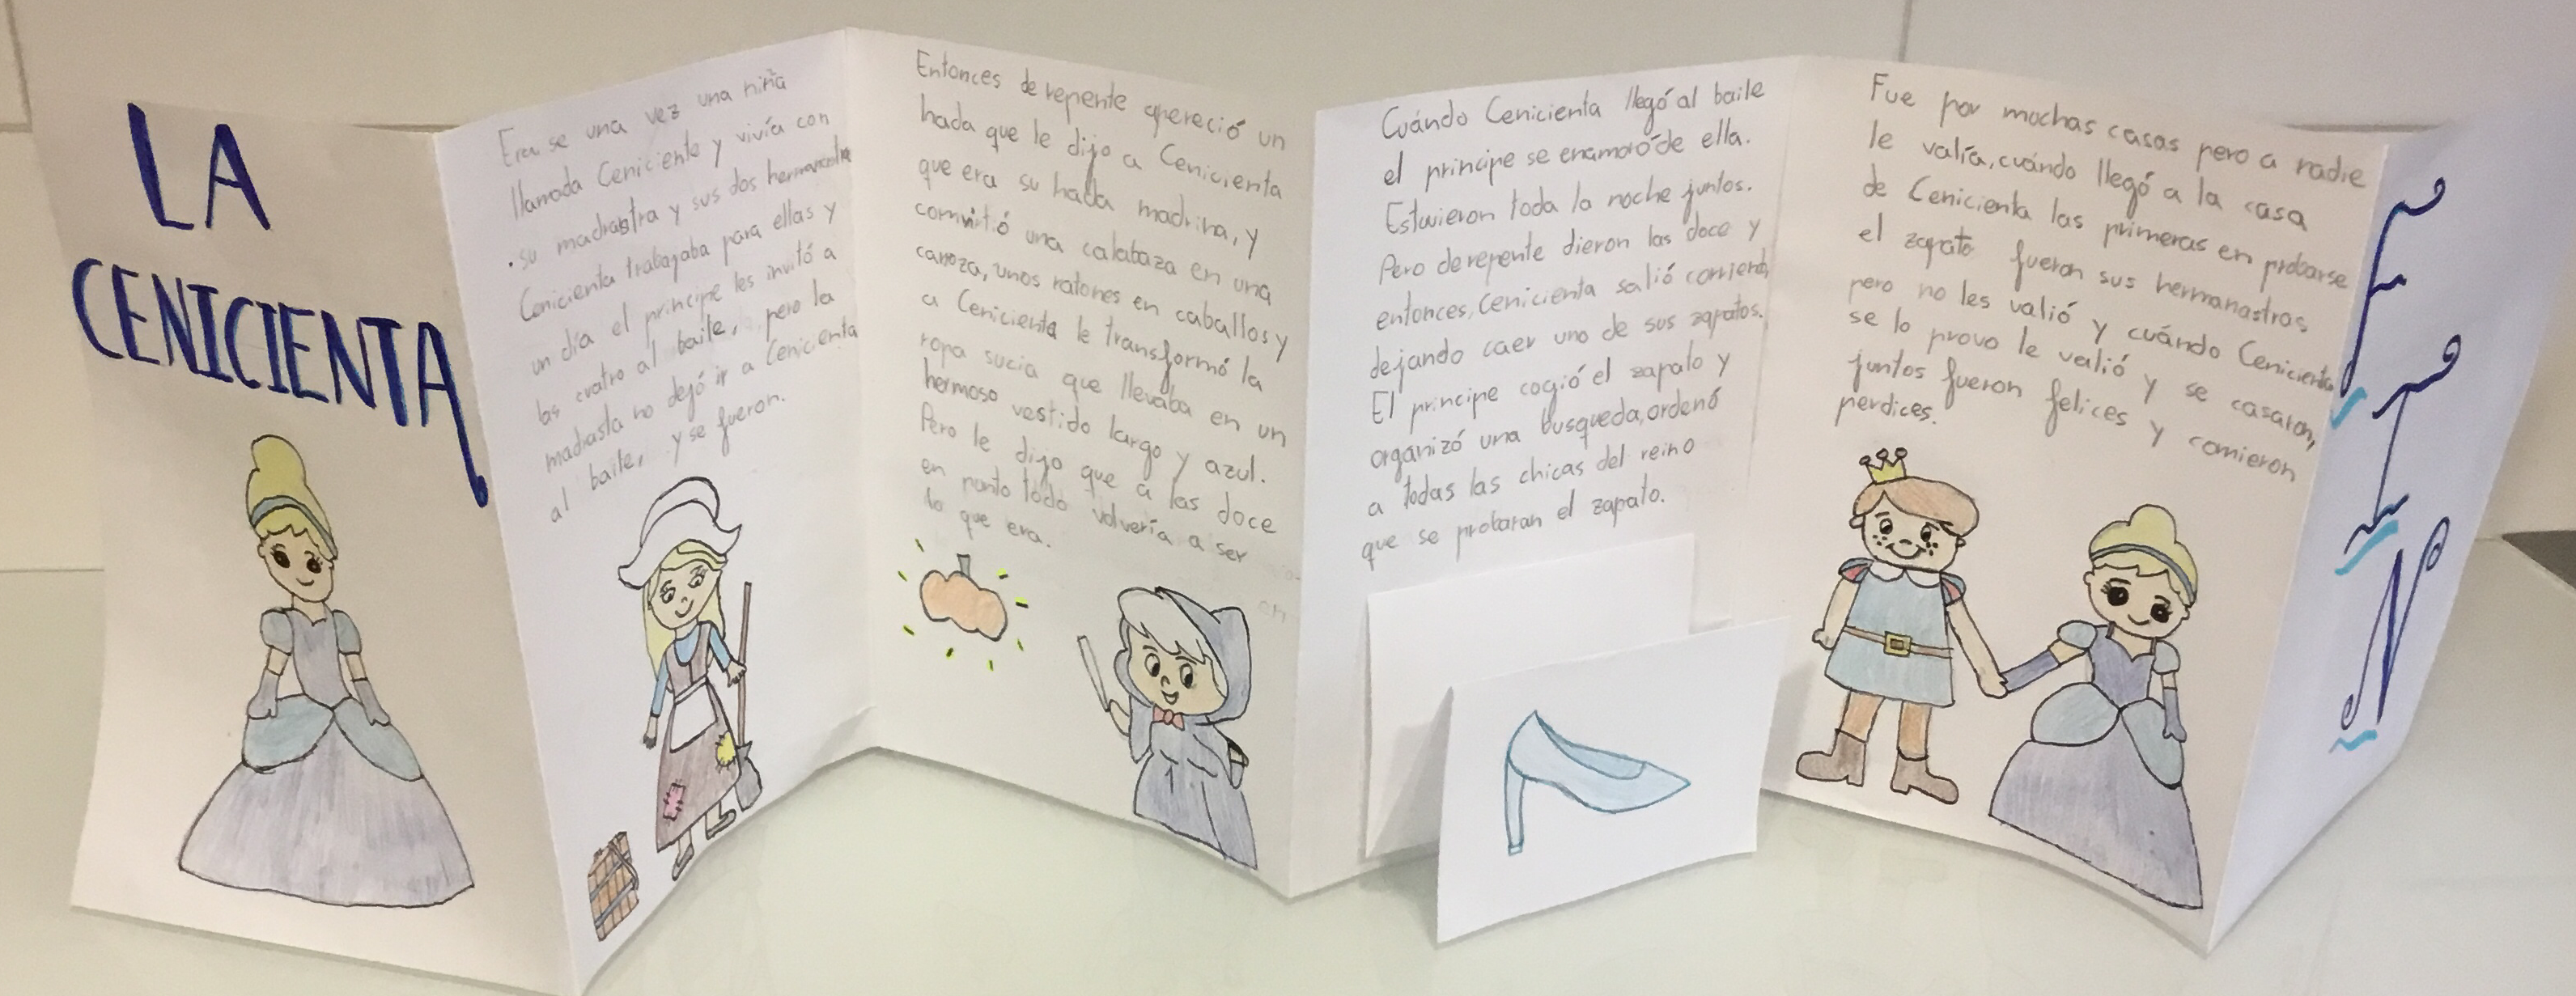 LA
CENICIENTA
Erase una vez una niña
llamada Ceniciente y vivía con
su madrastra y sus dos hermanastra
Cenicienta trabajaba para ellas y
un día el principe les invitó a
las cuatro al baile, pero la
madrasta no dejó ir a Cenicienta
al baile, y se fueron.
Entonces de repente apereció un
hada que le dijo a Cenicienta
que era su hada madrina, y
convirtió una calabaza en una
carroza, unos ratones en caballos y
a Cenicienta le transformó la
ropa sucia que llevaba en un
hermoso vestido largo y azul.
Pero le dijo que a las doce
en punto todo volvería a ser
lo que era.
Cuándo Cenicienta llegó al baile
el principe se enamoró de ella.
Estuvieron toda la noche juntos.
Pero derepente dieron las doce y
entonces, Cenicienta salió corriendo
dejando caer uno de sus zapatos.
El principe cogió el zapato y
organizó una busqueda, ordenó
a todas las chicas del reino
que se probaran el zapato.
Fue por muchas casas pero a nadie
le valía, cuándo llegó a la casa
de Cenicienta las primeras en probarse
el zapato fueron sus hermanastras
pero no les valió y cuándo Cenicienta
se lo provo le valió y se casaron,
juntos fueron felices y comieron
perdices.
FIN